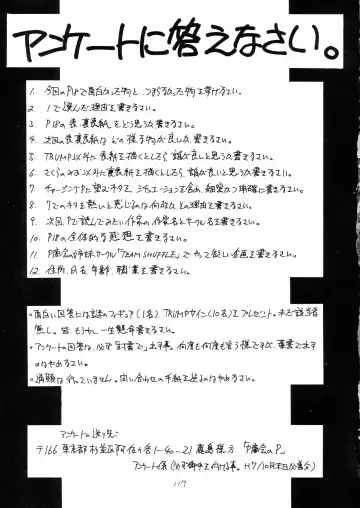 アンケートに答えなさい。
1. 今回のP18で面白かった物と、つまらなかった物を挙げなさい。
2. 1で選んだ理由を書きなさい。
3. P18の表裏表紙をどう思うか書きなさい。
4. 次回の表裏表紙はどの様な物が良いか書きなさい。
5. TRUMP以外に表紙を描くとしたら誰が良いと思うか書きなさい。
6. さくらのみず以外に裏表紙を描くとしたら誰が良いと思うか書きなさい。
7. チャージングPに望むネタを、シチュエーションを含め、細密かつ明確に書きなさい。
8. 7でのネタを熱いと感じるのは何故か、その理由を書きなさい。
9. 次回、Pで読んでみたい作家の作家名とサークル名を書きなさい。
10. P18の全体的な感想を書きなさい。
11. P商会の姉妹サークル「TEAM SHUFFLE」でやって欲しい企画を書きなさい。
12. 住所、氏名、年齢、職業を書きなさい。
○面白い回答には謎のフィギュア(1名)、TRUMPサイン(10名)をプレゼント。
無し。皆、もう少し一生懸命書きなさい。
○アンケートの回答は、必ず「封書で」出す事。何度も何度も言う様ですが、葉書で出す
のはやめなさい。
○通販は行っていません。問い合わせの手紙を送るのはやめなさい。
アンケートの送り先:
〒166 東京都杉並区阿佐ヶ谷1-40-21 鹿島様方 「P商会のP」
アンケート係 (H7/10月末日必着分)
117